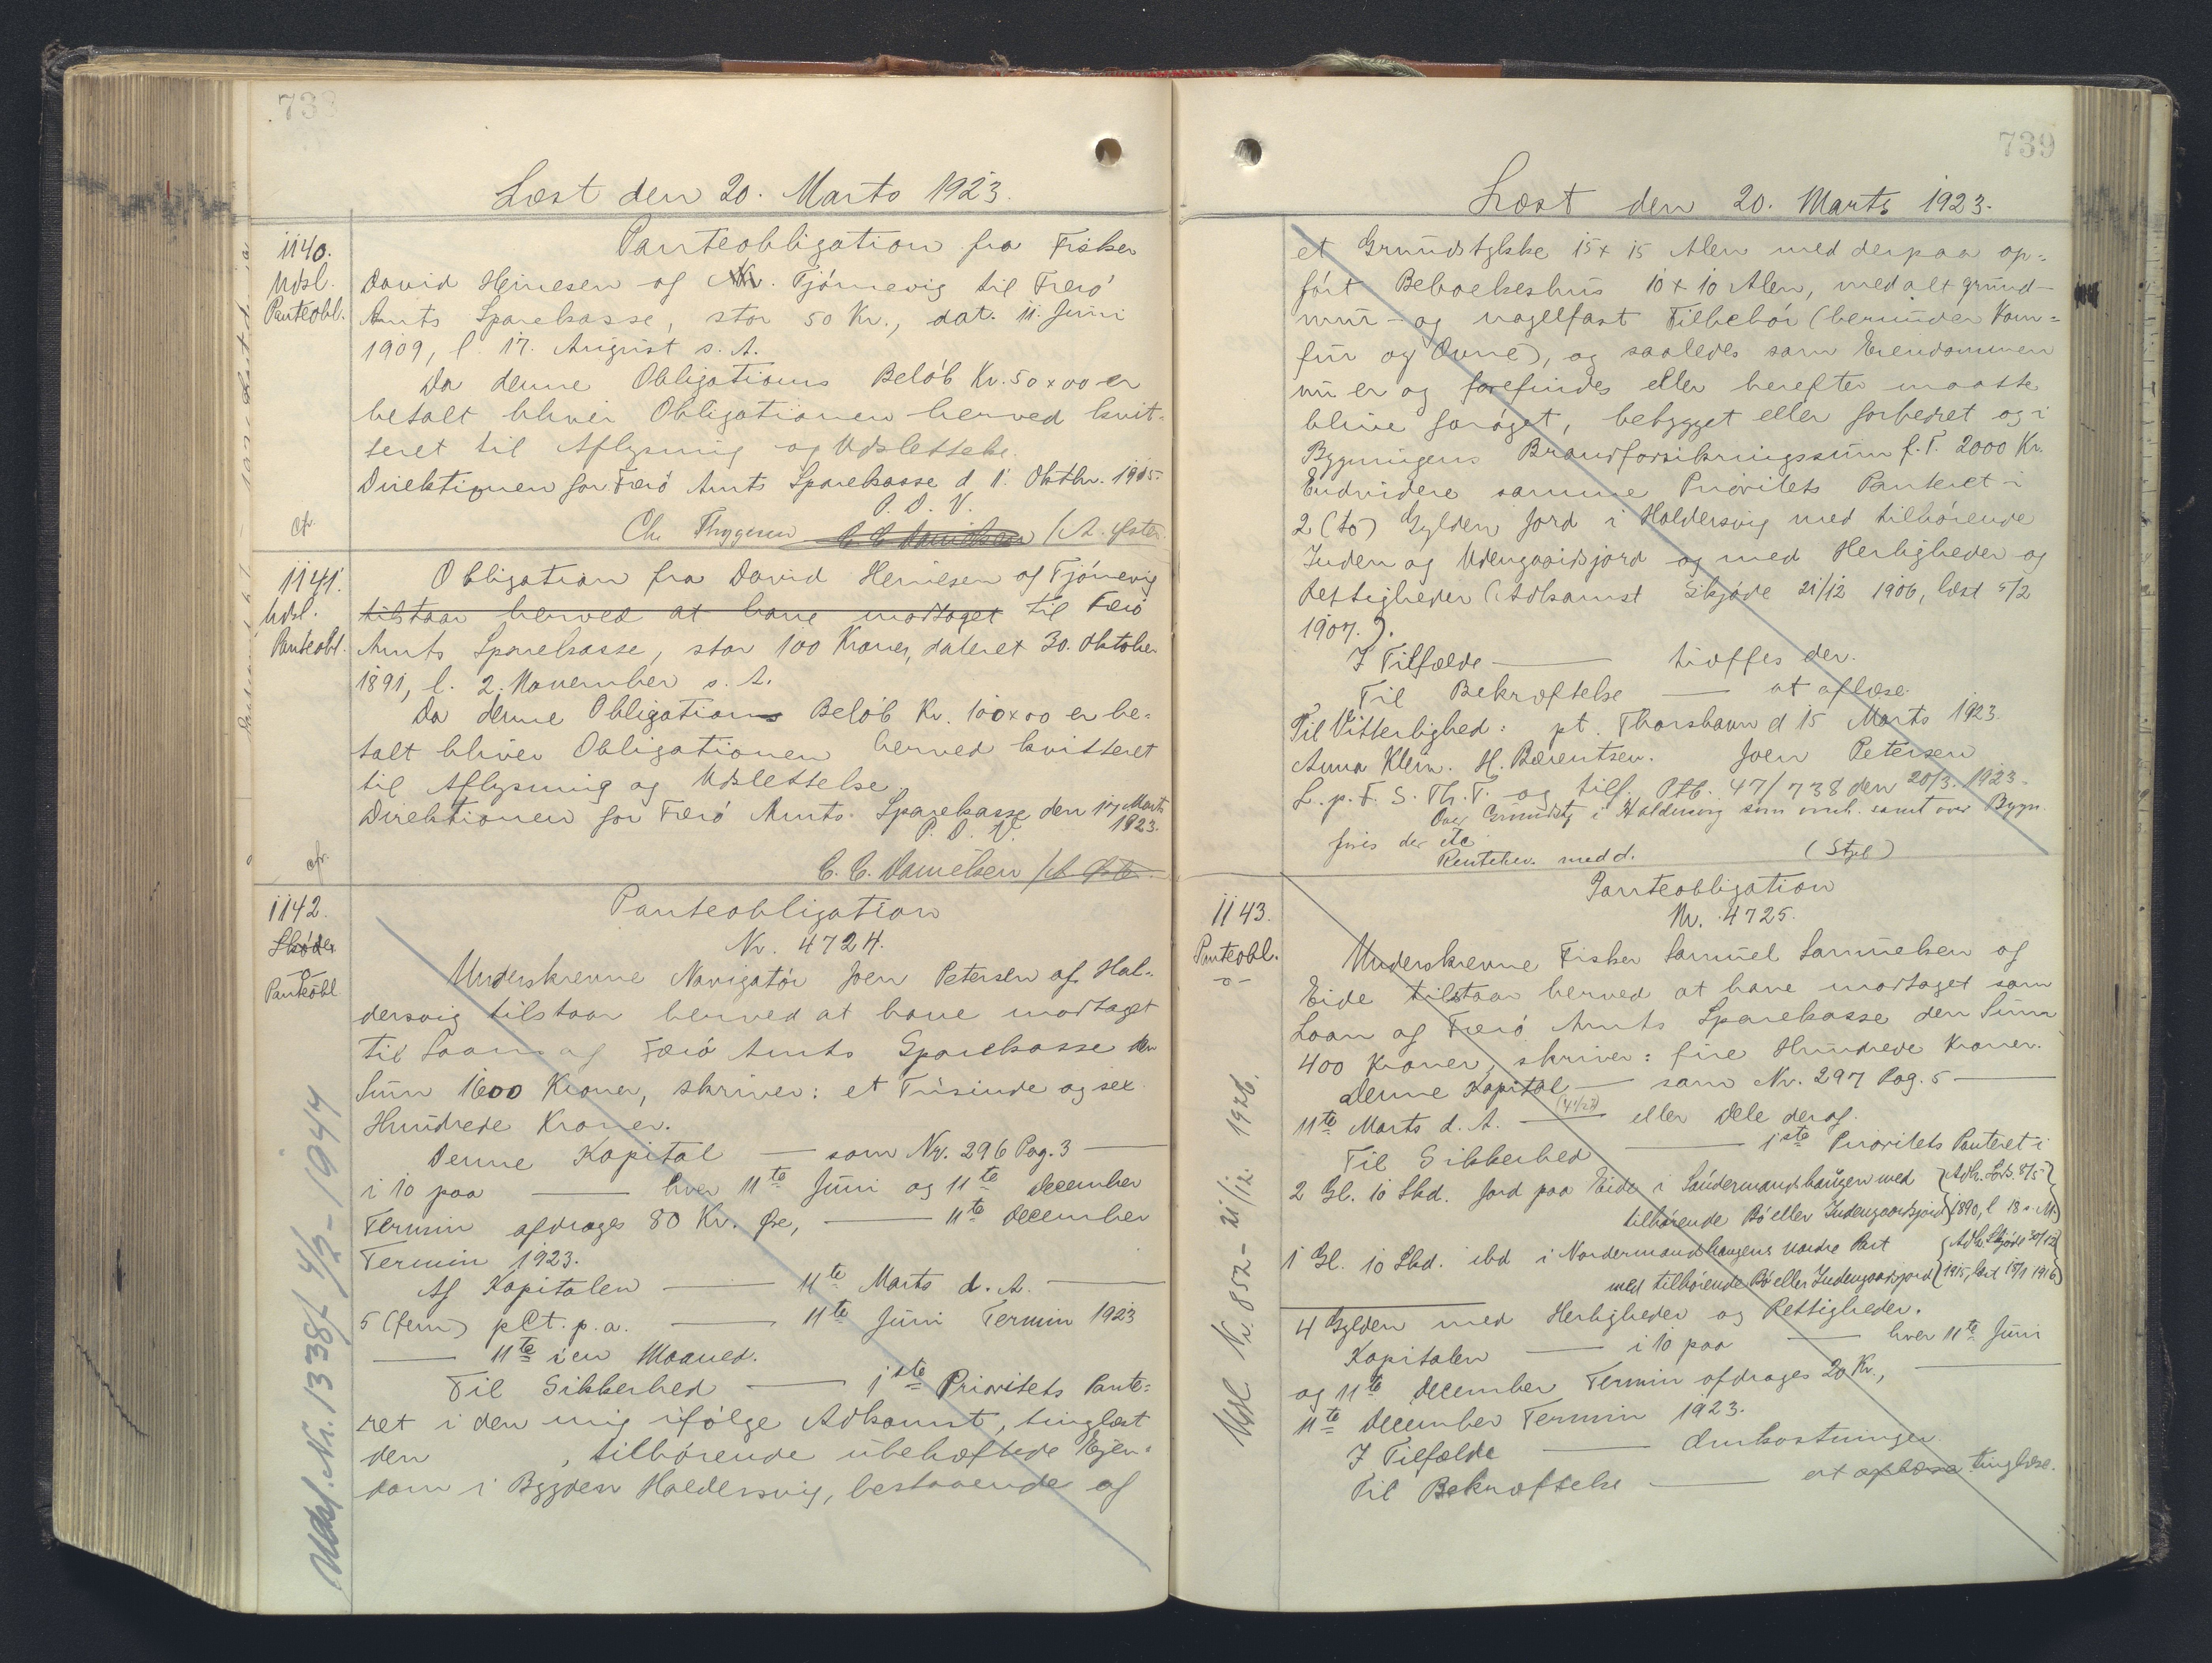 738
Læst den 20. Marts 1923.
1140.
Udsl.
Panteobl.
Panteobligation fra Fisker
David Heinesen af Tjörnevig til Færö
Amts Sparekasse, stor 50 Kr., dat. 11. Juni
1909, l. 17. August s. A.
Da denne Obligations Belöb Kr. 50 x 00 er
betalt bliver Obligationen herved kvit-
teret til Aflysning og Udslettelse.
Direktionen for Færö Amts Sparekasse d 1. Oktbr. 1915.
P. D. V.
cfr.
Chr. Thygesen C. C. Danielsen /A.
1141.
Udsl.
Panteobl.
Obligation fra David Heinesen af Tjörnevig
tilstaar herved at have modtaget til Færö
Amts Sparekasse, stor 100 Kroner, dateret 30. Oktober
1891, l. 2. November s. A.
Da denne Obligations Belöb Kr. 100 x 00 er be-
talt bliver Obligationen herved kvitteret
til Aflysning og Udslettelse.
Direktionen for Færö Amts Sparekasse den 17 Marts
1923.
P. D. V.
cfr.
C. C. Danielsen
1142.
Skøde
Panteobl
Panteobligation
Nr. 4724.
Underskrevne Navigatör Joen Petersen af Hal-
dersvig tilstaar herved at have modtaget
til Laans af Færö Amts Sparekasse den
Sum 1600 Kroner, skriver: et Tusinde og sex
Hundrede Kroner.
Denne Kapital — som Nr. 296 Pag. 3 —
i 10 paa — hver 11te Juni og 11te December
Termin afdrages 80 Kr. Øre, — 11te December
Termin 1923.
Af Kapitalen — 11te Marts d. A. —
5 (fem) pCt. p. a. — 11te Juni Termin 1923
— 11te i en Maaned.
Til Sikkerhed — 1ste Prioritets Pante-
ret i den mig ifölge Adkomst, tinglæst
den , tilhörende ubehæftede Ejen-
dom i Bygden Haldersvig, bestaaende af
Udsl. Nr. 1338f 4/2-1944
739
Læst den 20. Marts 1923.
et Grundstykke 15 x 15 Alen med derpaa op-
fört Beboelseshus 10 x 10 Alen, med alt grund-
mur- og nagelfast Tilbehör (herunder Kom-
fur og Ovne), og saaledes som Ejendommen
nu er og forefindes eller herefter maatte
blive foröget, bebygget eller forbedret og i
Bygningens Brandforsikringssum f. T. 2000 Kr.
Endvidere samme Prioritets Panteret i
2 (to) Gylden Jord i Haldersvig med tilhörende
Inden og Udengaardsjord og med Herligheder og
Rettigheder (Adkomst Skjöde 21/12 1906, læst 5/2
1907.).
I Tilfælde — træffes der.
Til Bekræftelse — at aflæse.
Til Vitterlighed: pt. Thorshavn d 15 Marts 1923.
Anna Klein. H. Bærentsen. Joen Petersen
L. p. F. S. Th. T. og tilf. Ptb. 47/738 den 20/3. 1923.
Over Grundst. i Haldersvig som omh. samt over Bygn.
der etc
Rentehev. medd. (Stpl)
1143.
Panteobl.
-o-
Panteobligation
Nr. 4725.
Underskrevne Fisker Samuel Samuelsen og
Eide tilstaar herved at have modtaget som
Laan af Færö Amts Sparekasse den Sum
400 Kroner, skriver: fire Hundrede Kroner.
Denne Kapital — som Nr. 297 Pag. 5 —
11te Marts d. A. — eller Dele deraf.
Til Sikkerhed — 1ste Prioritets Panteret i
2 Gl. 10 Skd. Jord paa Eide i Söndermandshaugen med
tilhörende Bö eller Indengaardsjord {Adk. 8/5 1890, l 18 s. M}
1 Gl. 10 Skd. ibd i Nordermandshaugens nordre Part
med tilhörende Bö eller Indengaardsjord {Adk. Skjöde 30/12 1915, læst 15/1 1916}
4 Gylden med Herligheder og Rettigheder.
Kapitalen — i 10 paa — hver 11te Juni
og 11te December Termin afdrages 20 Kr., —
11te December Termin 1923.
I Tilfælde — Omkostninger.
Til Bekræftelse — at aflæse tinglæse.
Udsl Nr. 852 - 21/12 1926.